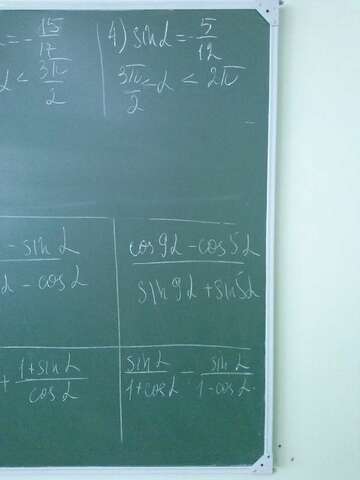 = -15/17
4) sin α = -5/12
α < 3π/2
3π/2 < α < 2π
- sin α
α - cos α
cos 9α - cos 5α
sin 9α + sin 5α
+ 1 + sin α / cos α
sin α / 1 + cos α - sin α / 1 - cos α